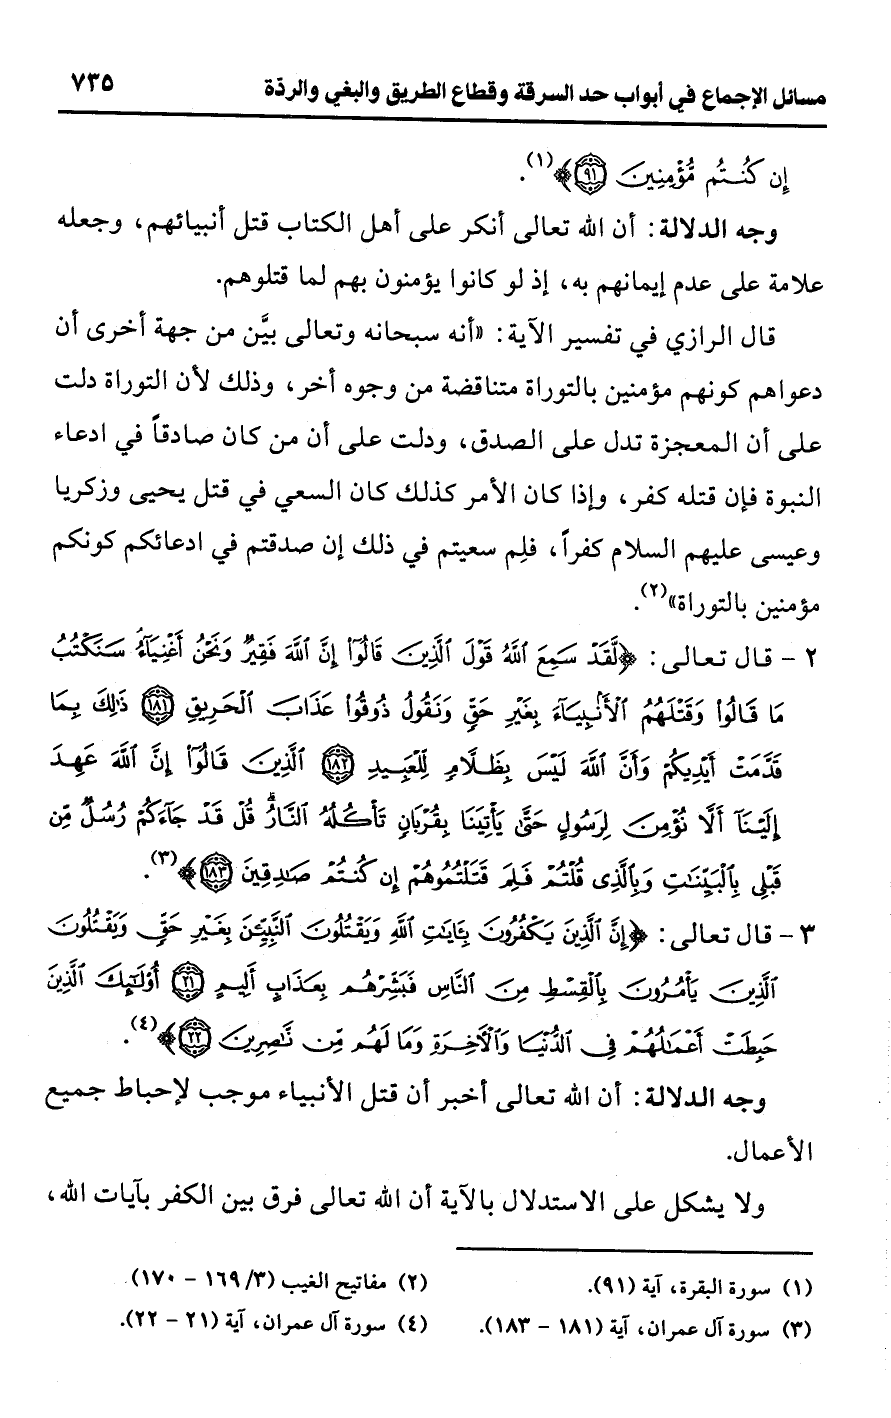 مسائل الإجماع في أبواب حد السرقة وقطاع الطريق والبغي والردّة ٧٣٥
إِن كُنتُم مُّؤْمِنِينَ ﴿٩١﴾﴾(١).
وجه الدلالة: أن الله تعالى أنكر على أهل الكتاب قتل أنبيائهم، وجعله
علامة على عدم إيمانهم به، إذ لو كانوا يؤمنون بهم لما قتلوهم.
قال الرازي في تفسير الآية: «أنه سبحانه وتعالى بيَّن من جهة أخرى أن
دعواهم كونهم مؤمنين بالتوراة متناقضة من وجوه أخر، وذلك لأن التوراة دلت
على أن المعجزة تدل على الصدق، ودلت على أن من كان صادقاً في ادعاء
النبوة فإن قتله كفر، وإذا كان الأمر كذلك كان السعي في قتل يحيى وزكريا
وعيسى عليهم السلام كفراً، فلِم سعيتم في ذلك إن صدقتم في ادعائكم كونكم
مؤمنين بالتوراة»(٢).
٢ - قال تعالى: ﴿لَّقَدْ سَمِعَ اللَّهُ قَوْلَ الَّذِينَ قَالُوا إِنَّ اللَّهَ فَقِيرٌ وَنَحْنُ أَغْنِيَاءُ سَنَكْتُبُ
مَا قَالُوا وَقَتْلَهُمُ الْأَنبِيَاءَ بِغَيْرِ حَقٍّ وَنَقُولُ ذُوقُوا عَذَابَ الْحَرِيقِ ﴿١٨١﴾ ذَٰلِكَ بِمَا
قَدَّمَتْ أَيْدِيكُمْ وَأَنَّ اللَّهَ لَيْسَ بِظَلَّامٍ لِّلْعَبِيدِ ﴿١٨٢﴾ الَّذِينَ قَالُوا إِنَّ اللَّهَ عَهِدَ
إِلَيْنَا أَلَّا نُؤْمِنَ لِرَسُولٍ حَتَّىٰ يَأْتِيَنَا بِقُرْبَانٍ تَأْكُلُهُ النَّارُ ۗ قُلْ قَدْ جَاءَكُمْ رُسُلٌ مِّن
قَبْلِي بِالْبَيِّنَاتِ وَبِالَّذِي قُلْتُمْ فَلِمَ قَتَلْتُمُوهُمْ إِن كُنتُمْ صَادِقِينَ ﴿١٨٣﴾﴾(٣).
٣ - قال تعالى: ﴿إِنَّ الَّذِينَ يَكْفُرُونَ بِآيَاتِ اللَّهِ وَيَقْتُلُونَ النَّبِيِّينَ بِغَيْرِ حَقٍّ وَيَقْتُلُونَ
الَّذِينَ يَأْمُرُونَ بِالْقِسْطِ مِنَ النَّاسِ فَبَشِّرْهُم بِعَذَابٍ أَلِيمٍ ﴿٢١﴾ أُولَٰئِكَ الَّذِينَ
حَبِطَتْ أَعْمَالُهُمْ فِي الدُّنْيَا وَالْآخِرَةِ وَمَا لَهُم مِّن نَّاصِرِينَ ﴿٢٢﴾﴾(٤).
وجه الدلالة: أن الله تعالى أخبر أن قتل الأنبياء موجب لإحباط جميع
الأعمال.
ولا يشكل على الاستدلال بالآية أن الله تعالى فرق بين الكفر بآيات الله،
(١) سورة البقرة، آية (٩١). (٢) مفاتيح الغيب (٣/ ١٦٩ - ١٧٠).
(٣) سورة آل عمران، آية (١٨١ - ١٨٣). (٤) سورة آل عمران، آية (٢١ - ٢٢).